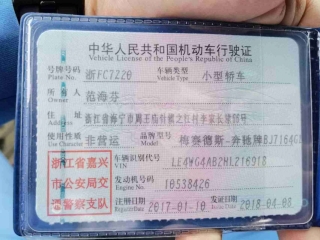 中华人民共和国机动车行驶证
Vehicle License of the People's Republic of China
号牌号码 浙FC7Z20 车辆类型 小型轿车
Plate No. Vehicle Type
所有人 范海芬
Owner
住址 浙江省海宁市周王庙镇
Address
使用性质 非营运 品牌型号 梅赛德斯-奔驰牌BJ7164
Use Character Model
浙江省嘉兴 车辆识别代号
VIN
市公安局交 发动机号码 10538426
Engine No.
通警察支队 注册日期 2017-01-10 发证日期 2018-04-08
Register Date Issue Date